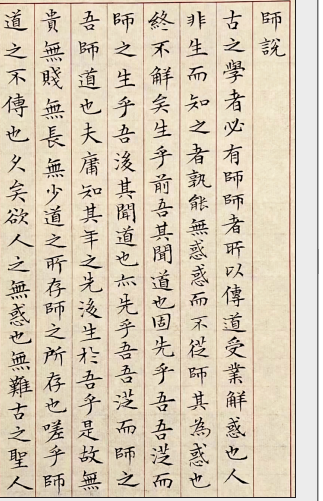 師說
古之學者必有師師者所以傳道受業解惑也人
非生而知之者孰能無惑惑而不從師其為惑也
終不解矣生乎前吾其聞道也固先乎吾吾從而
師之生乎吾後其聞道也亦先乎吾吾從而師之
吾師道也夫庸知其年之先後生於吾乎是故無
貴無賤無長無少道之所存師之所存也嗟乎師
道之不傳也久矣欲人之無惑也無難古之聖人